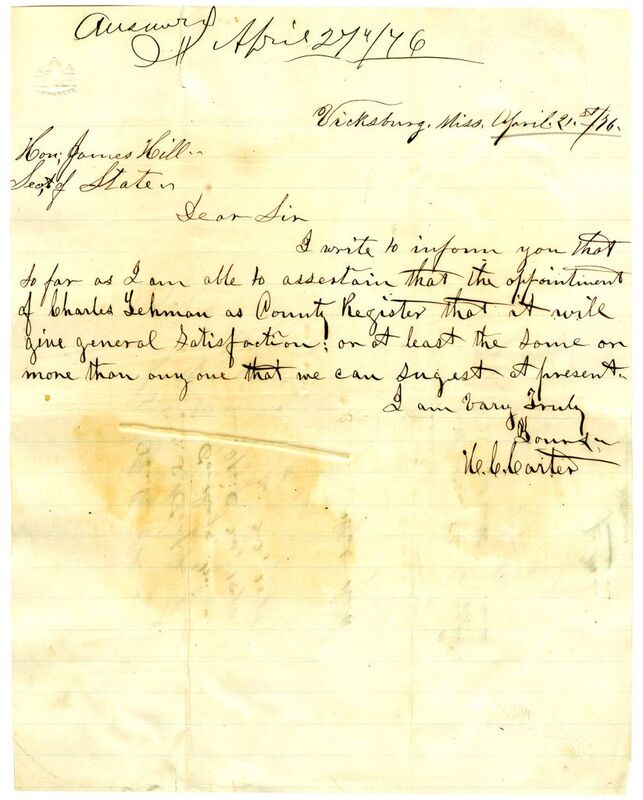 Answerd
April 27th/76
Vicksburg, Miss, April. 21.st/76.
Hon; James Hill
Sect of State
Dear Sir
I write to inform you that
so far as I am able to assertain that the oppointment
of Charles Lehman as County Register that it will
give general Satisfaction; or at least the same or
more than any one that we can sugest at present.
I am Vary Truly
Yours
H. C. Carter